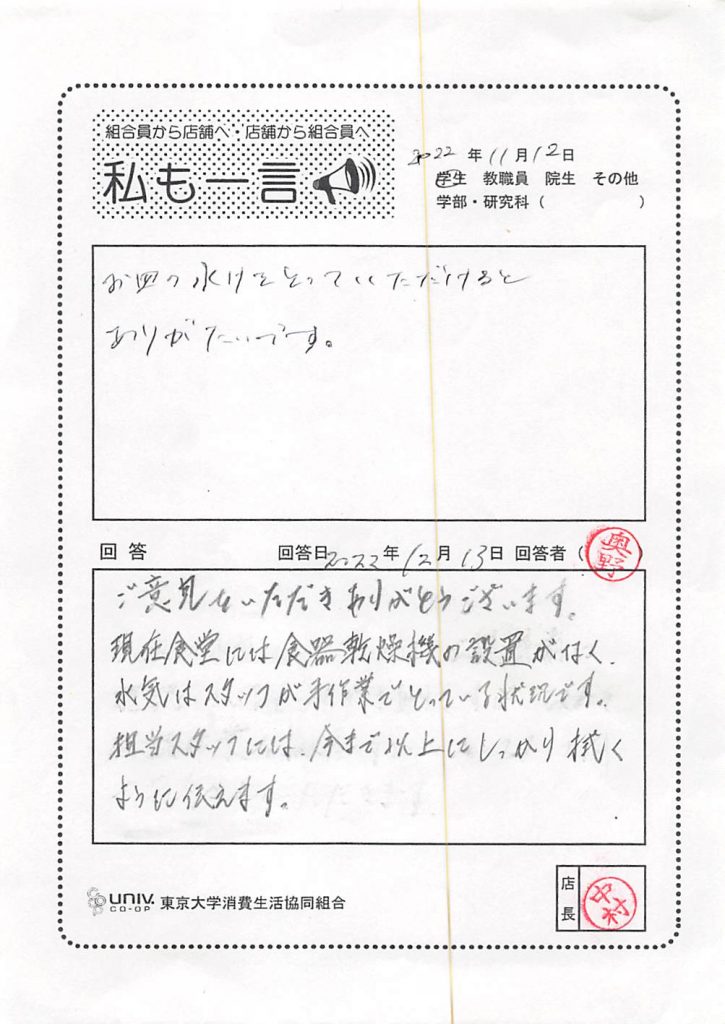 組合員から店舗へ・店舗から組合員へ
私も一言
2022年11月12日
学生 教職員 院生 その他
学部・研究科( )
お皿の水けをとっていただけると
ありがたいです。
回答 回答日2022年12月13日 回答者(奥野)
ご意見をいただきありがとうございます。
現在食堂には食器乾燥機の設置がなく、
水気はスタッフが手作業でとっている状況です。
担当スタッフには、今まで以上にしっかり拭く
ように伝えます。
UNIV. CO-OP 東京大学消費生活協同組合
店長 中村